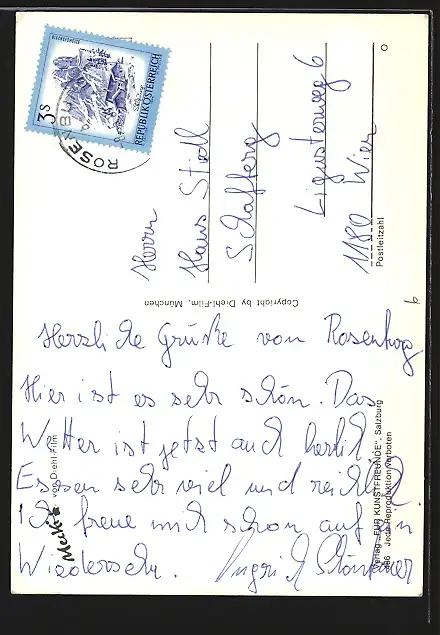 3S
REPUBLIK ÖSTERREICH
ROSENBU
Herrn
Hans Stidl
Schafberg
Ligusterweg 6
1180 Wien
Postleitzahl
Copyright by Diehl-Film, München
Herzliche Grüße von Rosenburg
Hier ist es sehr schön. Das
Wetter ist jetzt auch herrlich
Essen sehr viel und reichlich
Ich freue mich schon auf ein
Wiedersehn. Ingrid
Mecki
von Diehl-Film
Verlag „FÜR KUNSTFREUNDE", Salzburg
Jede Reproduktion verboten